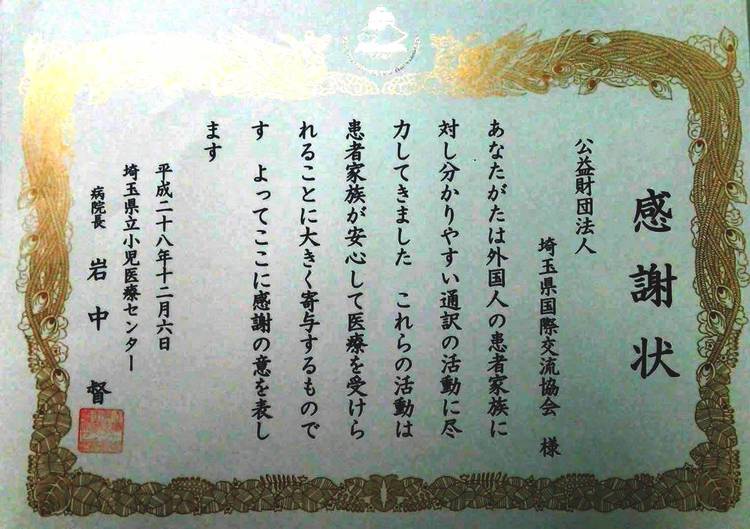 感謝状
公益財団法人
埼玉県国際交流協会 様
あなたがたは外国人の患者家族に
対し分かりやすい通訳の活動に尽
力してきました これらの活動は
患者家族が安心して医療を受けら
れることに大きく寄与するもので
す よってここに感謝の意を表し
ます
平成二十八年十二月六日
埼玉県立小児医療センター
病院長 岩中 督